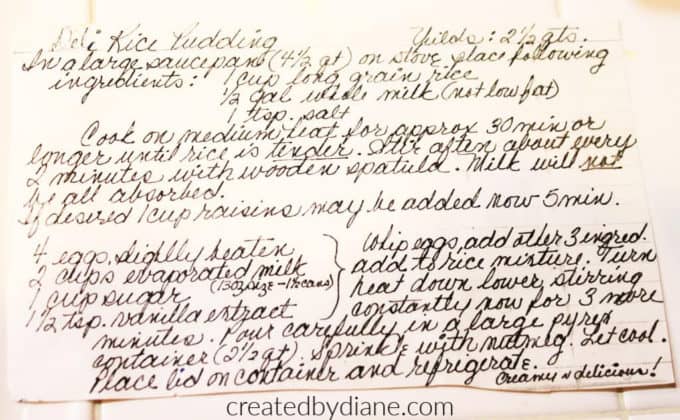 Deli Rice Pudding Yields: 2½ qts.
In a large saucepan (4½ qt) on stove place following
ingredients: 1 cup long grain rice
½ gal whole milk (not low fat)
1 tsp. salt
Cook on medium heat for approx 30 min or
longer until rice is tender. Stir often about every
2 minutes with wooden spatula. Milk will not
be all absorbed.
If desired 1 cup raisins may be added now 5 min.
4 eggs, slightly beaten
2 cups evaporated milk
(13 oz size - 1½ cans)
1 cup sugar
1½ tsp. vanilla extract
Whip eggs, add other 3 ingred.
add to rice mixture. Turn
heat down lower, stirring
constantly now for 3 more
minutes. Pour carefully in a large pyrex
container (2½ qt). Sprinkle with nutmeg. Let cool.
Place lid on container and refrigerate.
Creamy & delicious!
createdbydiane.com